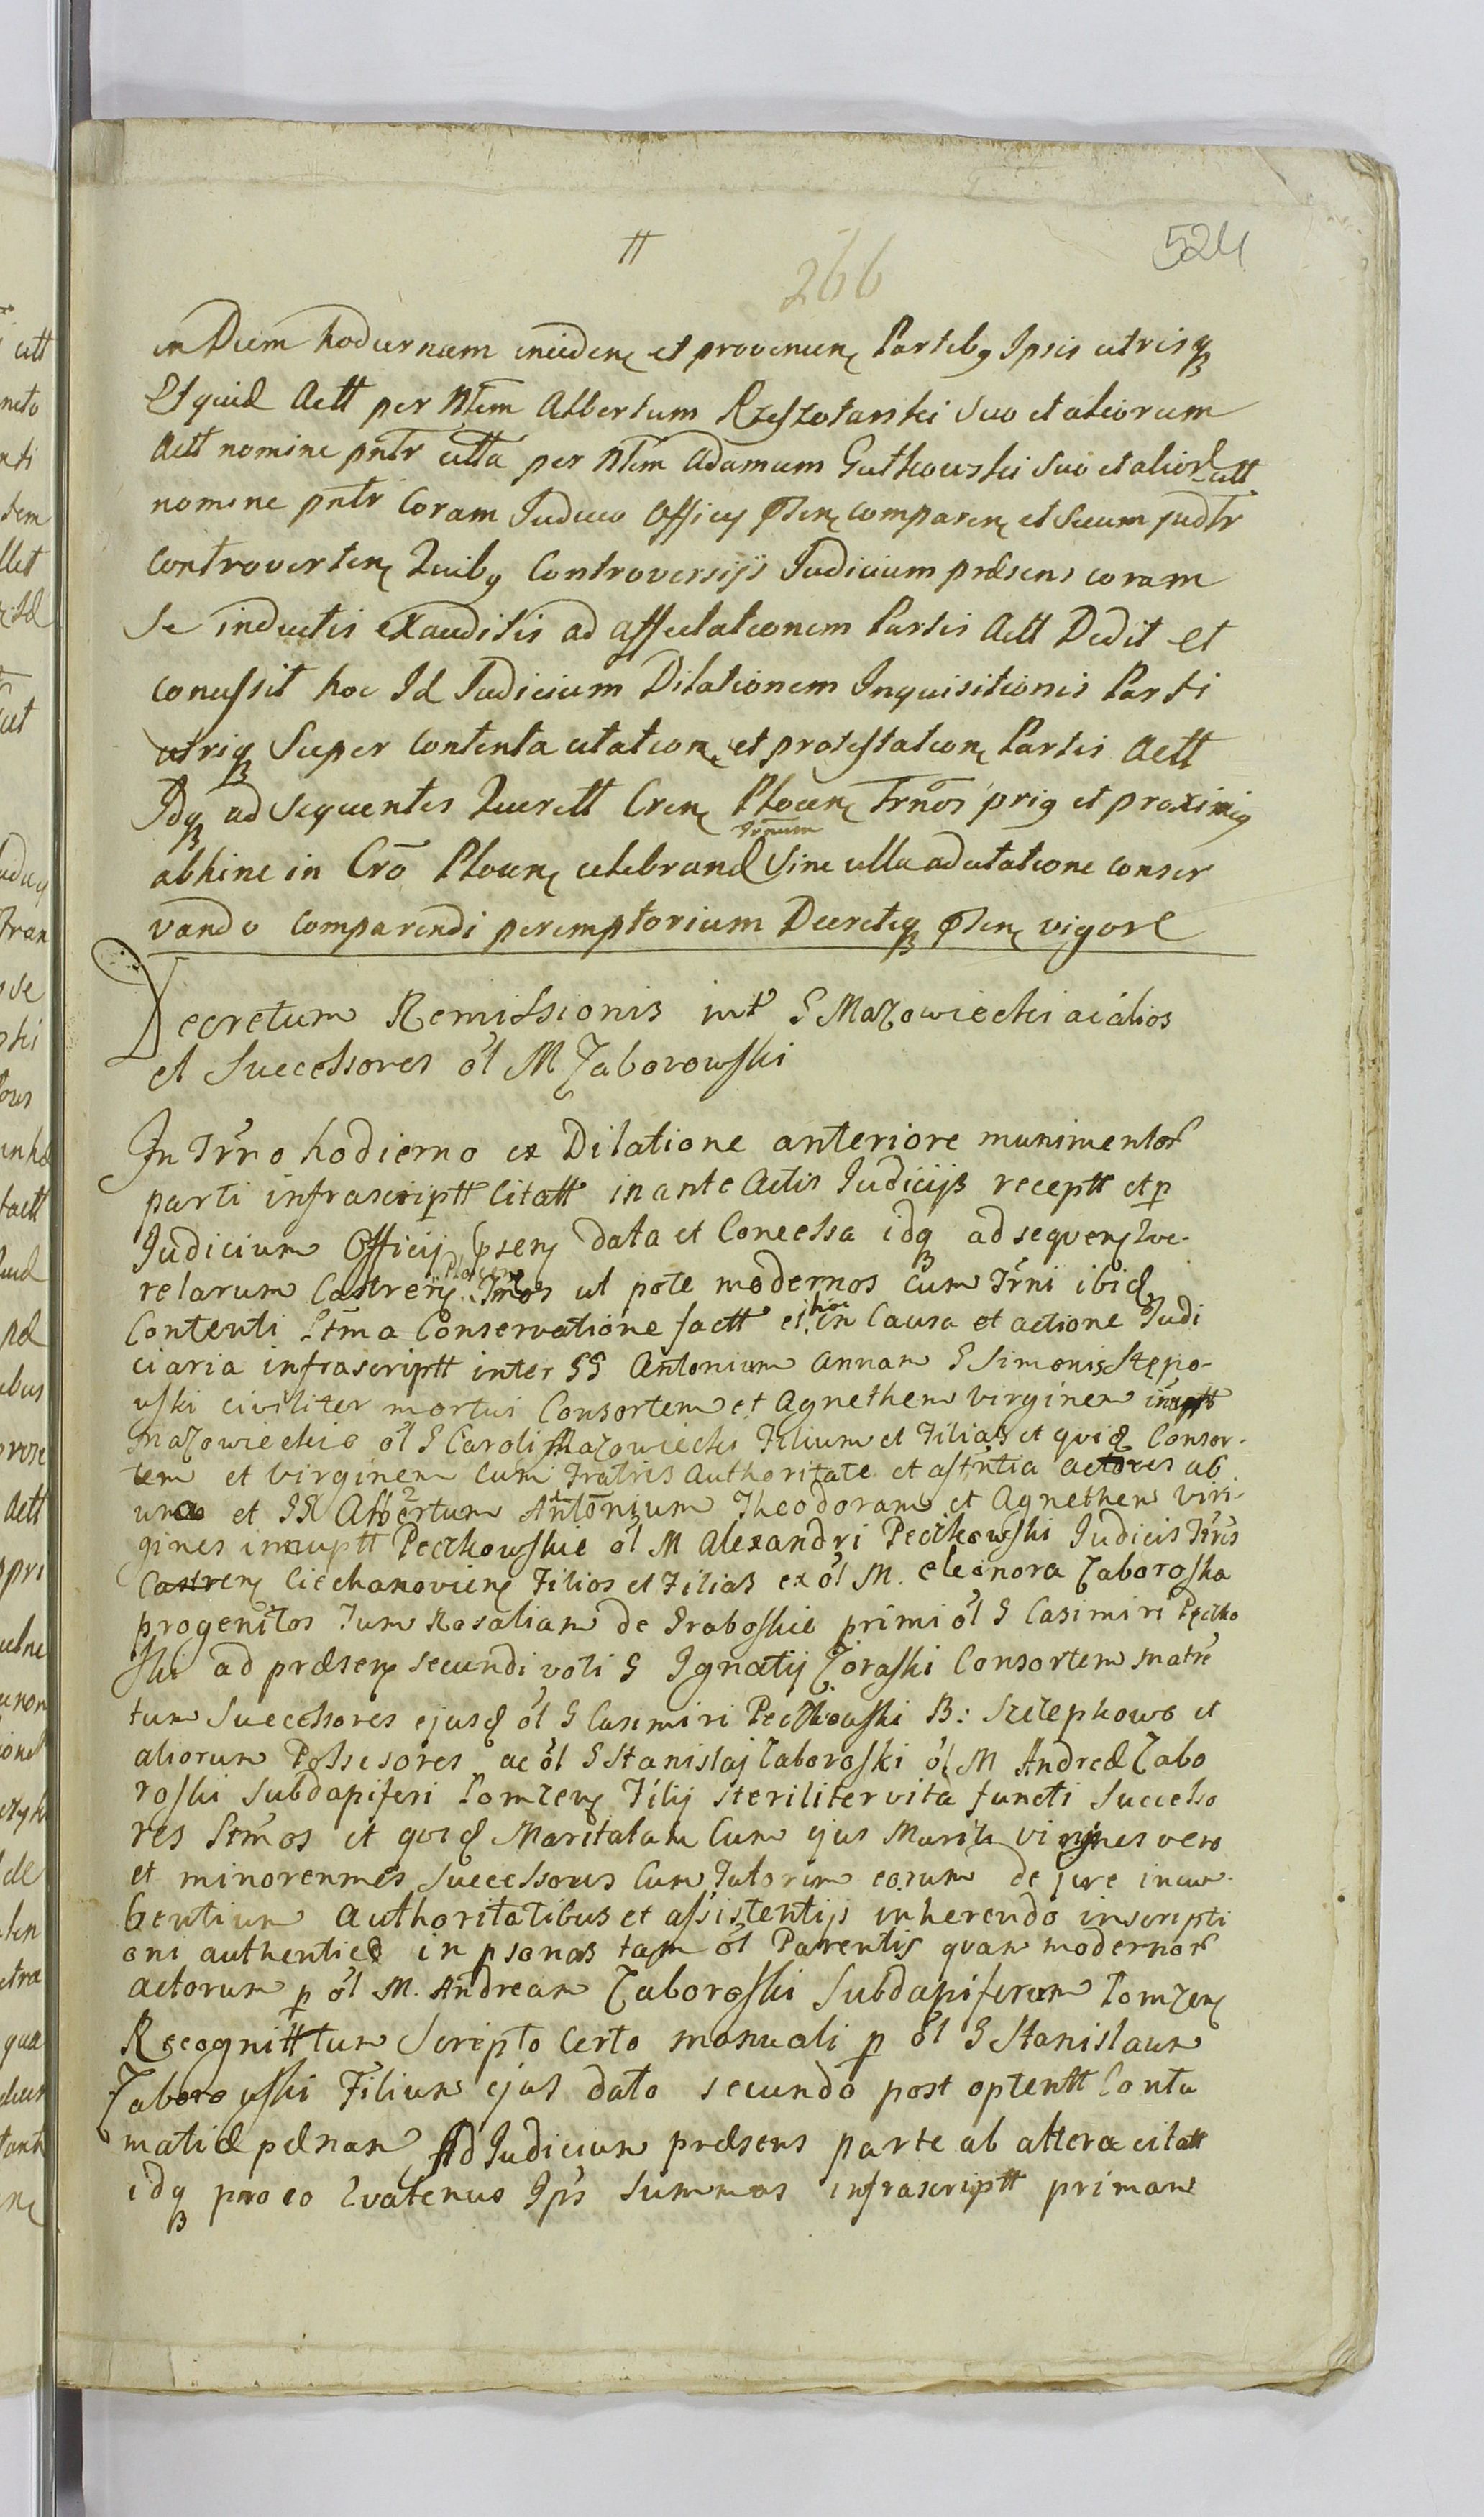 #
266
524
in Diem hodiernam incideñ et provenieñ Partibq Ipsis utrisq
Et quid Actt per Nlem Albertum Rzeszotarski suo et aliorum
Actt nomine pntr citta per Nlem Adamum Gutkowski suo et alior citt
nomine pntr Coram Judicio Officij pseñ compareñ et secum judtr
Controverteñ Quibq Controversijs Judicium præsens coram
se inductis exauditis ad affectationem Partis Actt Dedit et
concessit hoc Id Judicium Dilationem Inquisitionis Parti
utriq Super Contenta citationẽ et protestationẽ Partis Actt
Idq ad sequentes Querell Creñ Ploceñ Trnos prig et proximig
Trnum
abhinc in Cro Ploceñ celebrand sine ulla adcitatione conser
vando comparendi peremptorium Decretiq pseñ vigore
Decretum Remissionis int G Mazowiecki ac alios
et Successores ol M Zaborowski
In Trno hodierno ex Dilatione anteriore munimentor
parti infrascriptt Citatt in ante Actis Judicijs receptt et p
Judicium Officij pseñ data et Concessa idq ad sequeñ Que-
Ploceñ
relarum Castreñ Trnos ut pote modernos cum Trni ibid
hoc
Contenti Ltma Conservatione factt et in Causa et actione Judi
ciaria infrascriptt inter GG Antonium Annam G Simonis Stępo-
wski civiliter mortui Consortem et Agnethem virginem inuptt
Mazowieckie ol G Caroli Mazowiecki Filium et Filias et quid Consor-
tem et virginem cum Fratris Authoritate et astntia actores ab
una et GG Albertum Antonium Theodoram et Agnethem vir-
gines innuptt Pećkowskie ol M Alexandri Pećkowski Judicis Trris
Castreñ Ciechanovieñ Filios et Filias ex ol M. Eleonora Zaboroska
progenitos Tum Rosaliam de Graboskie primi ol G Casimiri Pećko
ski ad præseñ secundi voti G Ignatij Zoraski Consortem matre
tum Successores ejusd ol G Casimiri Pećkowski B: Szczepkowo et
aliorum Possesores ac ol G Stanislaj Zaboroski ol M Andreæ Zabo
roski Subdapiferi Lomzeñ Filij steriliter vita functi Successo
res Ltmos et quid Maritatam Cum ejus Marito virgines vero
et minorennes Successores Cum Tutorum eorum de jure incum-
bentium Authoritatibus et assistentijs inherendo inscripti
oni authenticæ in psonas tam ol Parentis quam modernor
actorum p ol M. Andream Zaboroski Subdapiferum Lomzeñ
Recognitt tum Scripto Certo manuali p ol G Stanislaum
Zaborowski Filium ejus dato secundo post optentt Contu
matiæ pænam Ad Judicium præsens parte ab altera citatt
idq pro eo Quatenus Ips summas infrascriptt primam